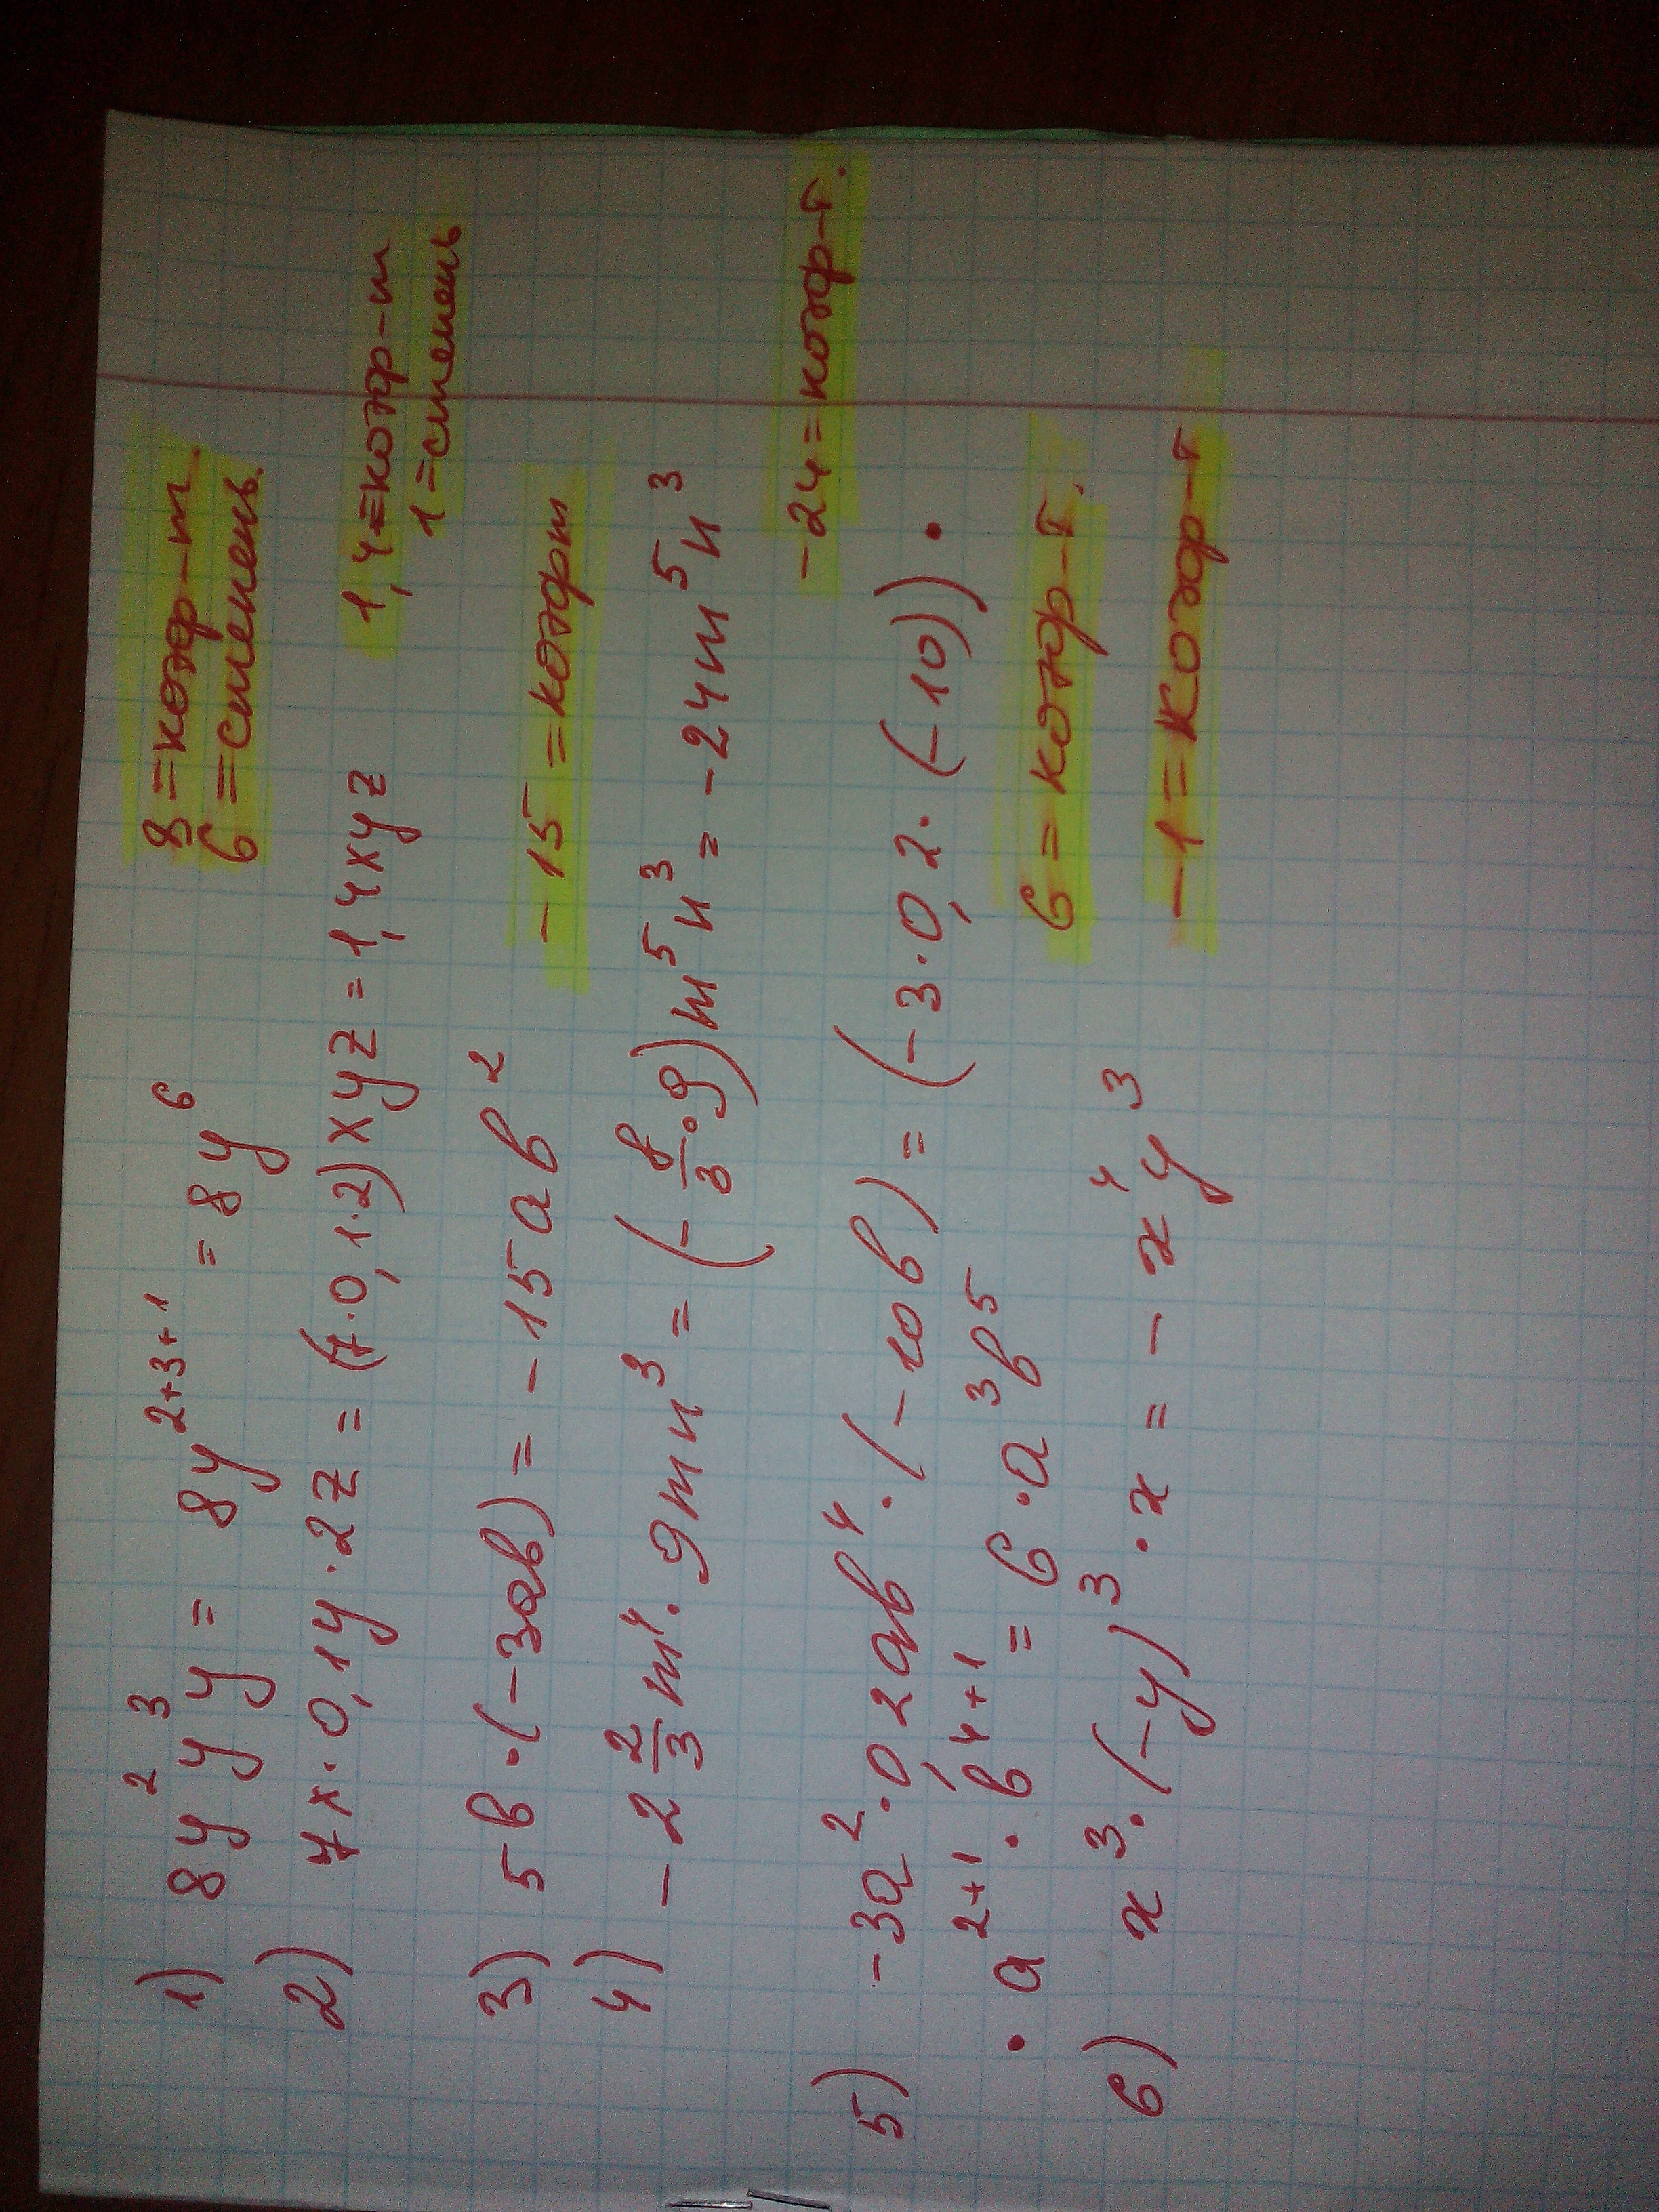 1) 8y²y³y = 8y²⁺³⁺¹ = 8y⁶
8 = коэф-т.
6 = степень.
2) 7x·0,1y·2z = (7·0,1·2)xyz = 1,4xyz
1,4 = коэф-т
1 = степень
3) 5в·(-3ав) = -15ав²
-15 = коэфт
4) -2 2/3 m⁴·9mn³ = (-8/3·9)m⁵n³ = -24m⁵n³
-24 = коэф-т.
5) -3а²·0,2ав⁴·(-10в) = (-3·0,2·(-10))·
·а²⁺¹·в⁴⁺¹ = 6·а³в⁵
6 = коэф-т.
6) x³·(-y)³·x = -x⁴y³
-1 = Коэф-т